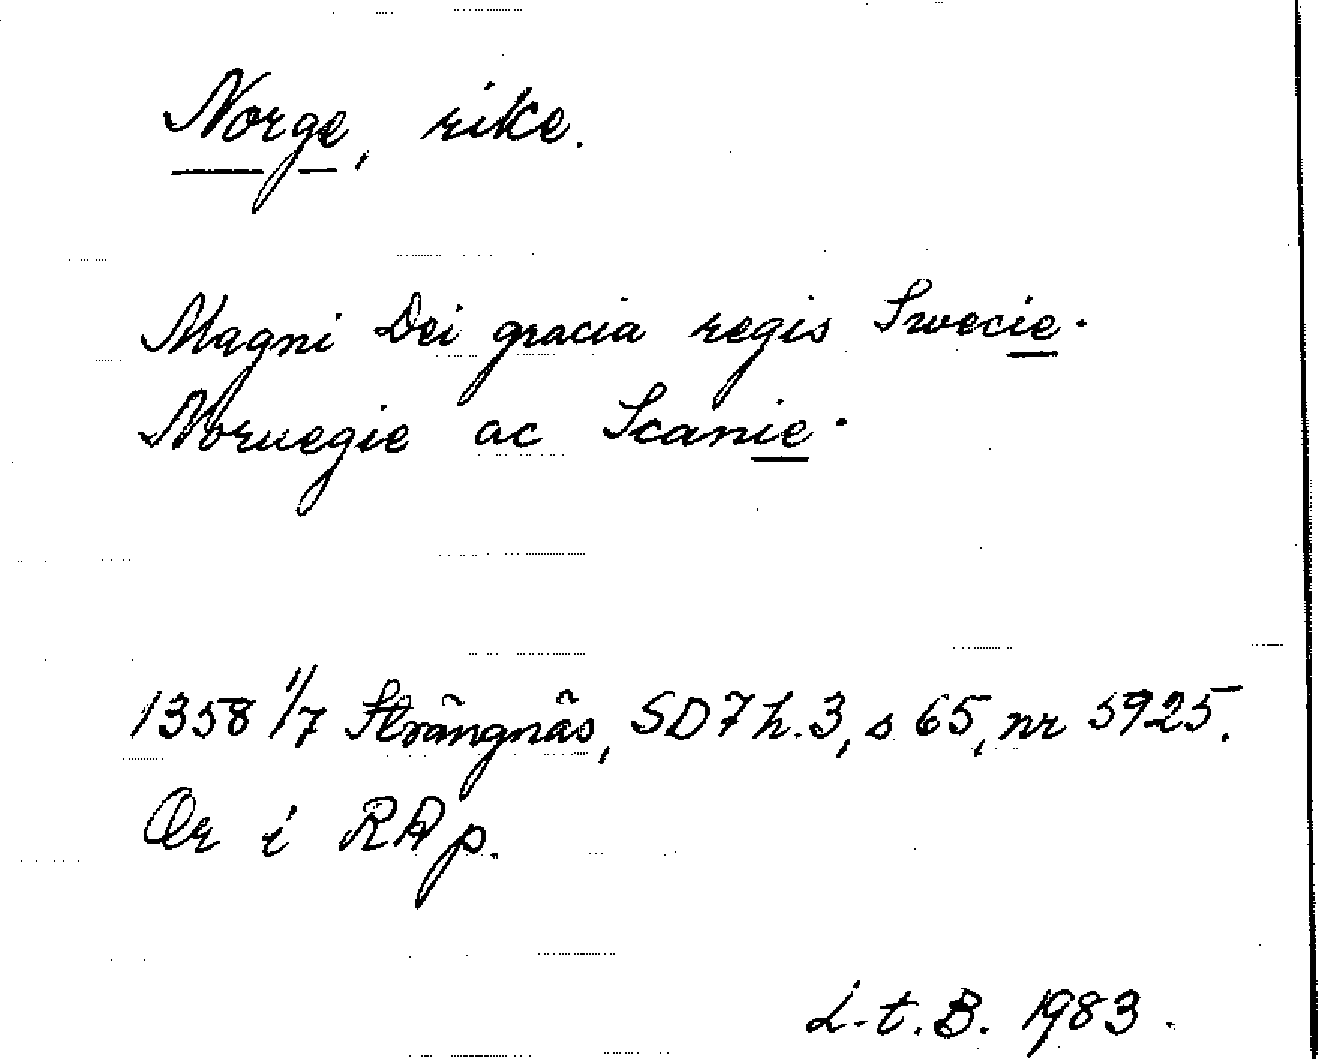 Norge, rike.
Magni Dei gracia regis Swecie.
Noruegie ac Scanie.
1358 1/7 Strängnäs, SD7 h.3, s 65, nr 5925.
Or i RAp.
L.t.B. 1983.